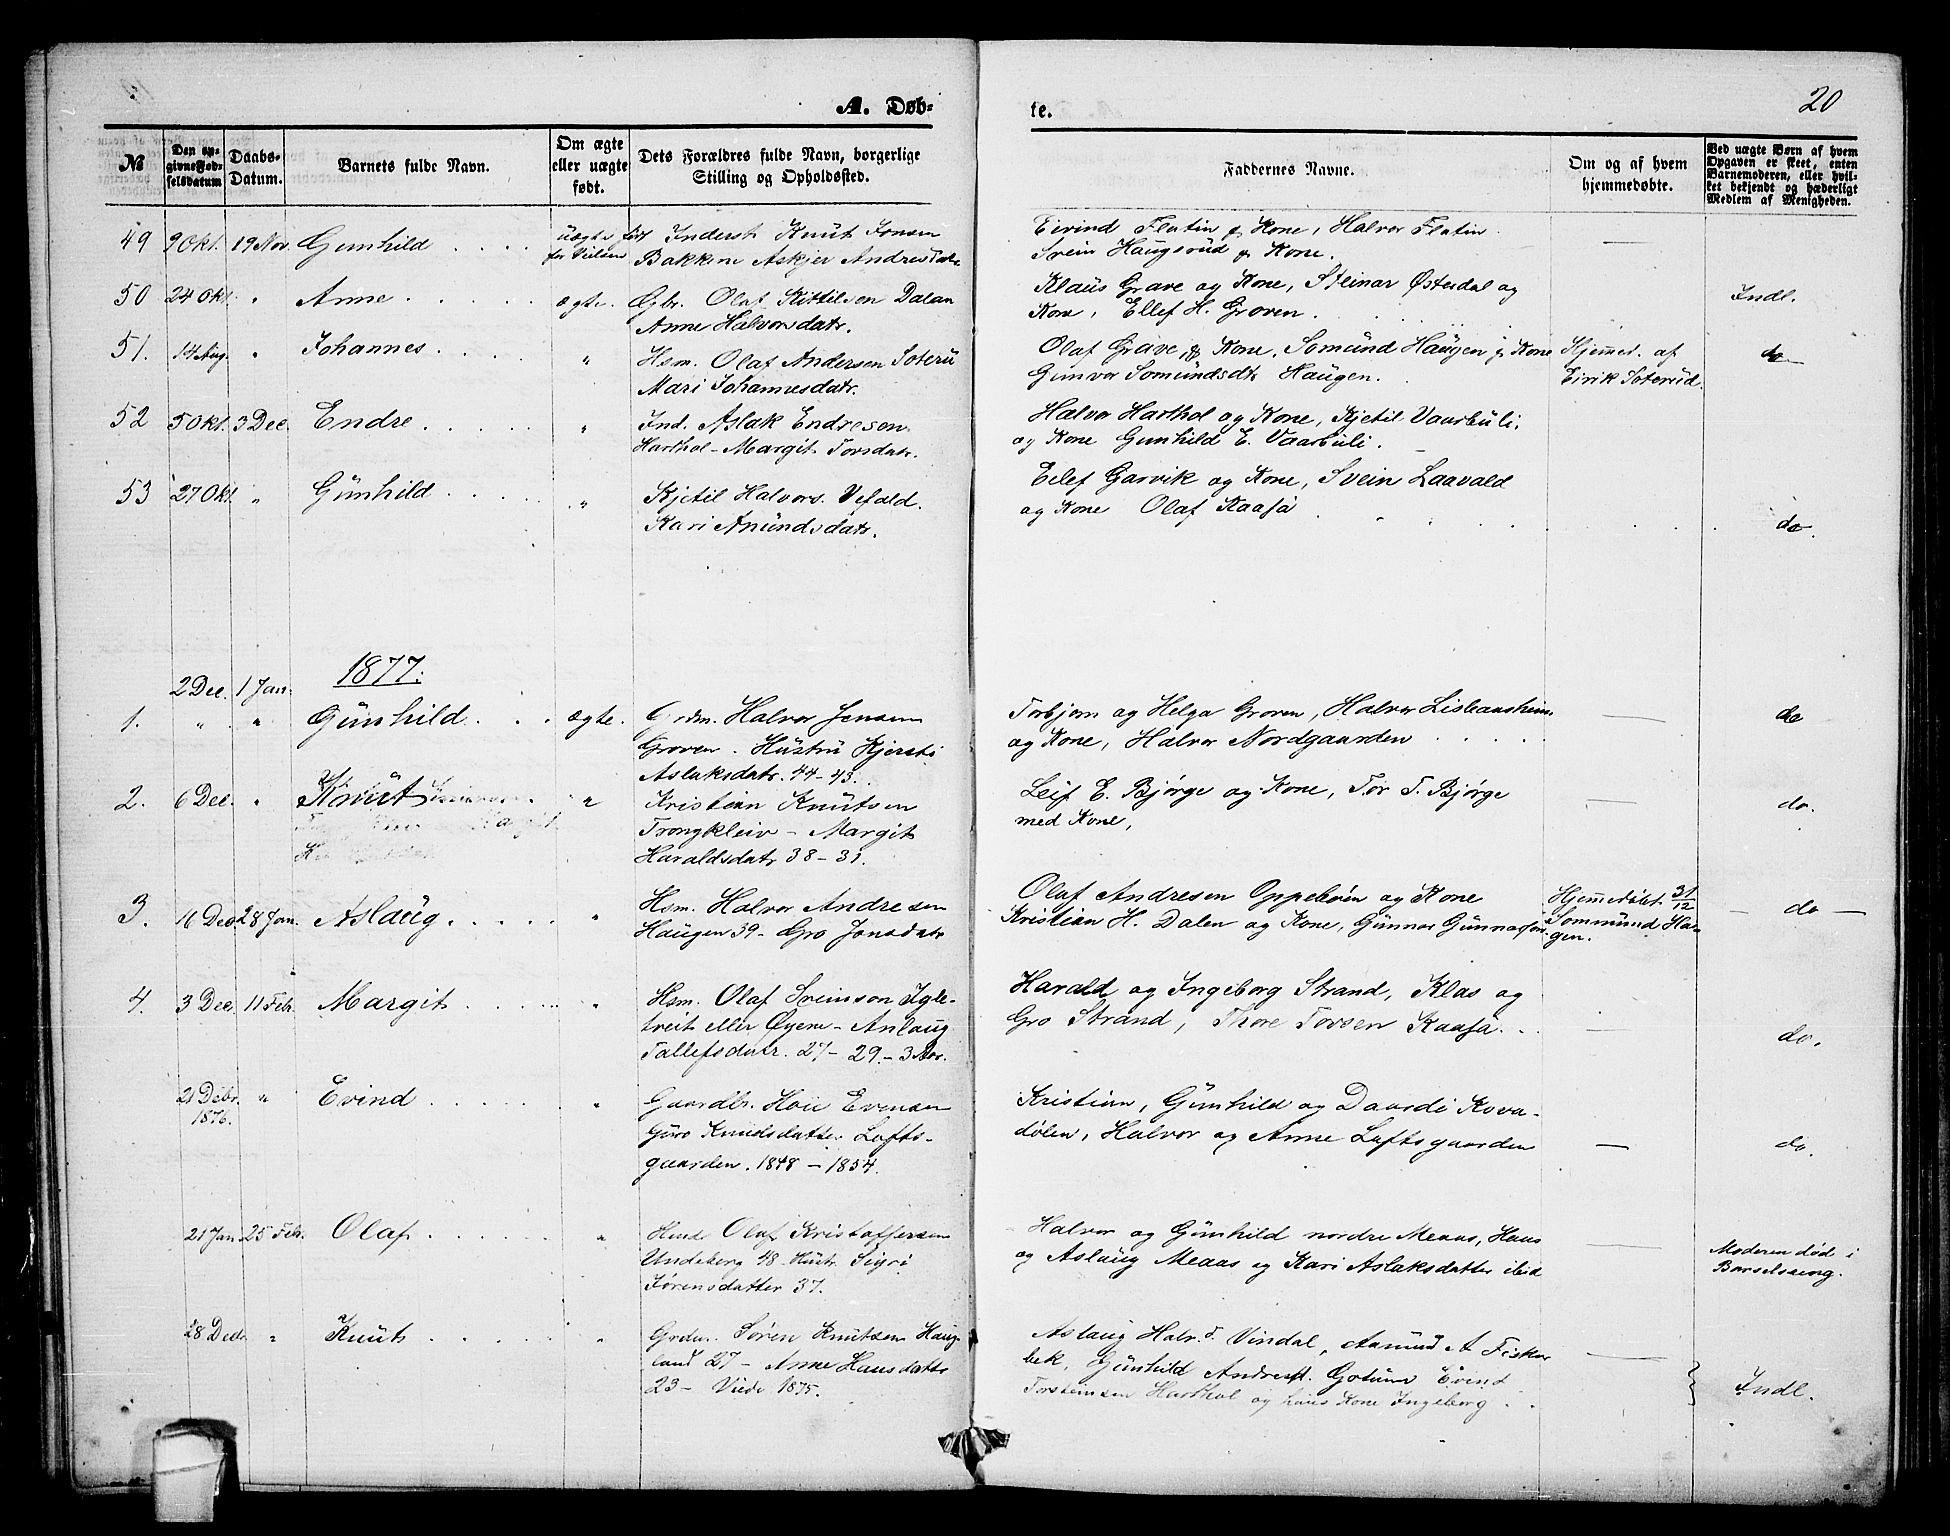 A. Døb-
te.
20
№
Den op-
givne Fød-
selsdatum
Daabs-
Datum.
Barnets fulde Navn.
Om ægte
eller uægte
født.
Dets Forældres fulde Navn, borgerlige
Stilling og Opholdssted.
Faddernes Navne.
Om og af hvem
hjemmedøbte.
Ved uægte Børn af hvem
Opgaven er skeet, enten
Barnemoderen, eller hvil-
ket bekjendt og hæderligt
Medlem af Menigheden.
49 9 Okt. 19 Nov. Gunhild uægte født Inderst Knut Jonsen
Bakken Askjer
Eivind Flatin og Kone, Halvor Flatin
Svein Haugsrud og Kone.
50 24 Okt. " Anne ægte. Gbr. Olaf Kittilsen Dalan
Anne Halvorsdatr.
Klaus Grave og Kone, Steinar Østerdal og
Kone, Ellef H. Groven.
Indl.
51. 14 Aug. " Johannes " Hsm. Olaf Andersen Soterü
Mari Johannesdatr.
Olaf Grave og Kone, Somund Haugen og Kone
Gunvor Somundsdtr Haugen.
Hjemmed. af
Eirik Soterüd.
do
52 5 Okt. 3 Dec. Endre " Ind. Aslak Endreson
Harthol - Margit Torsdatr.
Halvor Harthol og Kone, Kjetil Vaarbuli,
og Kone Gunhild E. Vaarbuli.
53 27 Okt. " Gunhild " Kjetil Halvors. Vefald.
Kari Anundsdatr.
Eilef Garvik og Kone, Svein Laavald
og Kone Olaf Kaasa
do.
1877.
2 Dec. 1 Jan.
1. " " Gunhild ægte. Grdm. Halvor Jensen
Groven. Hustru Kjersti
Aslaksdatr. 44-43.
Torbjørn og Helga Groven, Halvor
og Kone, Halvor Nordgaarden
do
2. 6 Dec. " Knut " Kristian Knutsen
Trongkleiv - Margit
Haraldsdatr 38-31.
Leif E. Bjørge og Kone, Tor T. Bjørge
med Kone,
do.
3. 16 Dec 28 Jan. Aslaug " Hsm. Halvor Andresen
Haugen 39 - Gro Jonsdatr
Olaf Andresen Oppebøen og Kone
Kristian H. Dalen og Kone, Gunnar Gunnarsen
Hjemmedøbt 31/12
Sommund Hau-
gen.
do
4. 3 Dec. 11 Feb. Margit " Hsm. Olaf Sveinson Igle-
treit eller Øyene - Anlaug
Tallefsdatr. 27-29.-
Harald og Ingeborg Strand, Klas og
Gro Strand, Thore Torsen Kaasa.
do.
21 Debr.
1876. " Evind " Gaardbr. Hoie Evensen
Guro Knudsdatter Lofts-
gaarden. 1848-1854.
Kristian, Gunhild og Daardi Kova-
dølen, Halvor og Anne Loftsgaarden
do.
21 Jan 25 Feb. Olaf " Olaf Kristoffersen
Undeberg 48 - Hustr. Sigri
Jørensdatter 37.
Halvor og Gunhild nordre Meaas, Hans
og Aslaug Meaas og Kari Aslaksdatter ibid
Moderen død i
Barselseng.
28 Decbr " Knut " Grdm. Søren Knutsen Haug-
land 27 - Anne Hansdatter
23 - Viede 1875.
Aslaug Halv. d. Vindal, Aamund A Fisker
bek, Gunhild Evind
Torsteinsen Harthol og hans Kone Ingeborg
Indl.